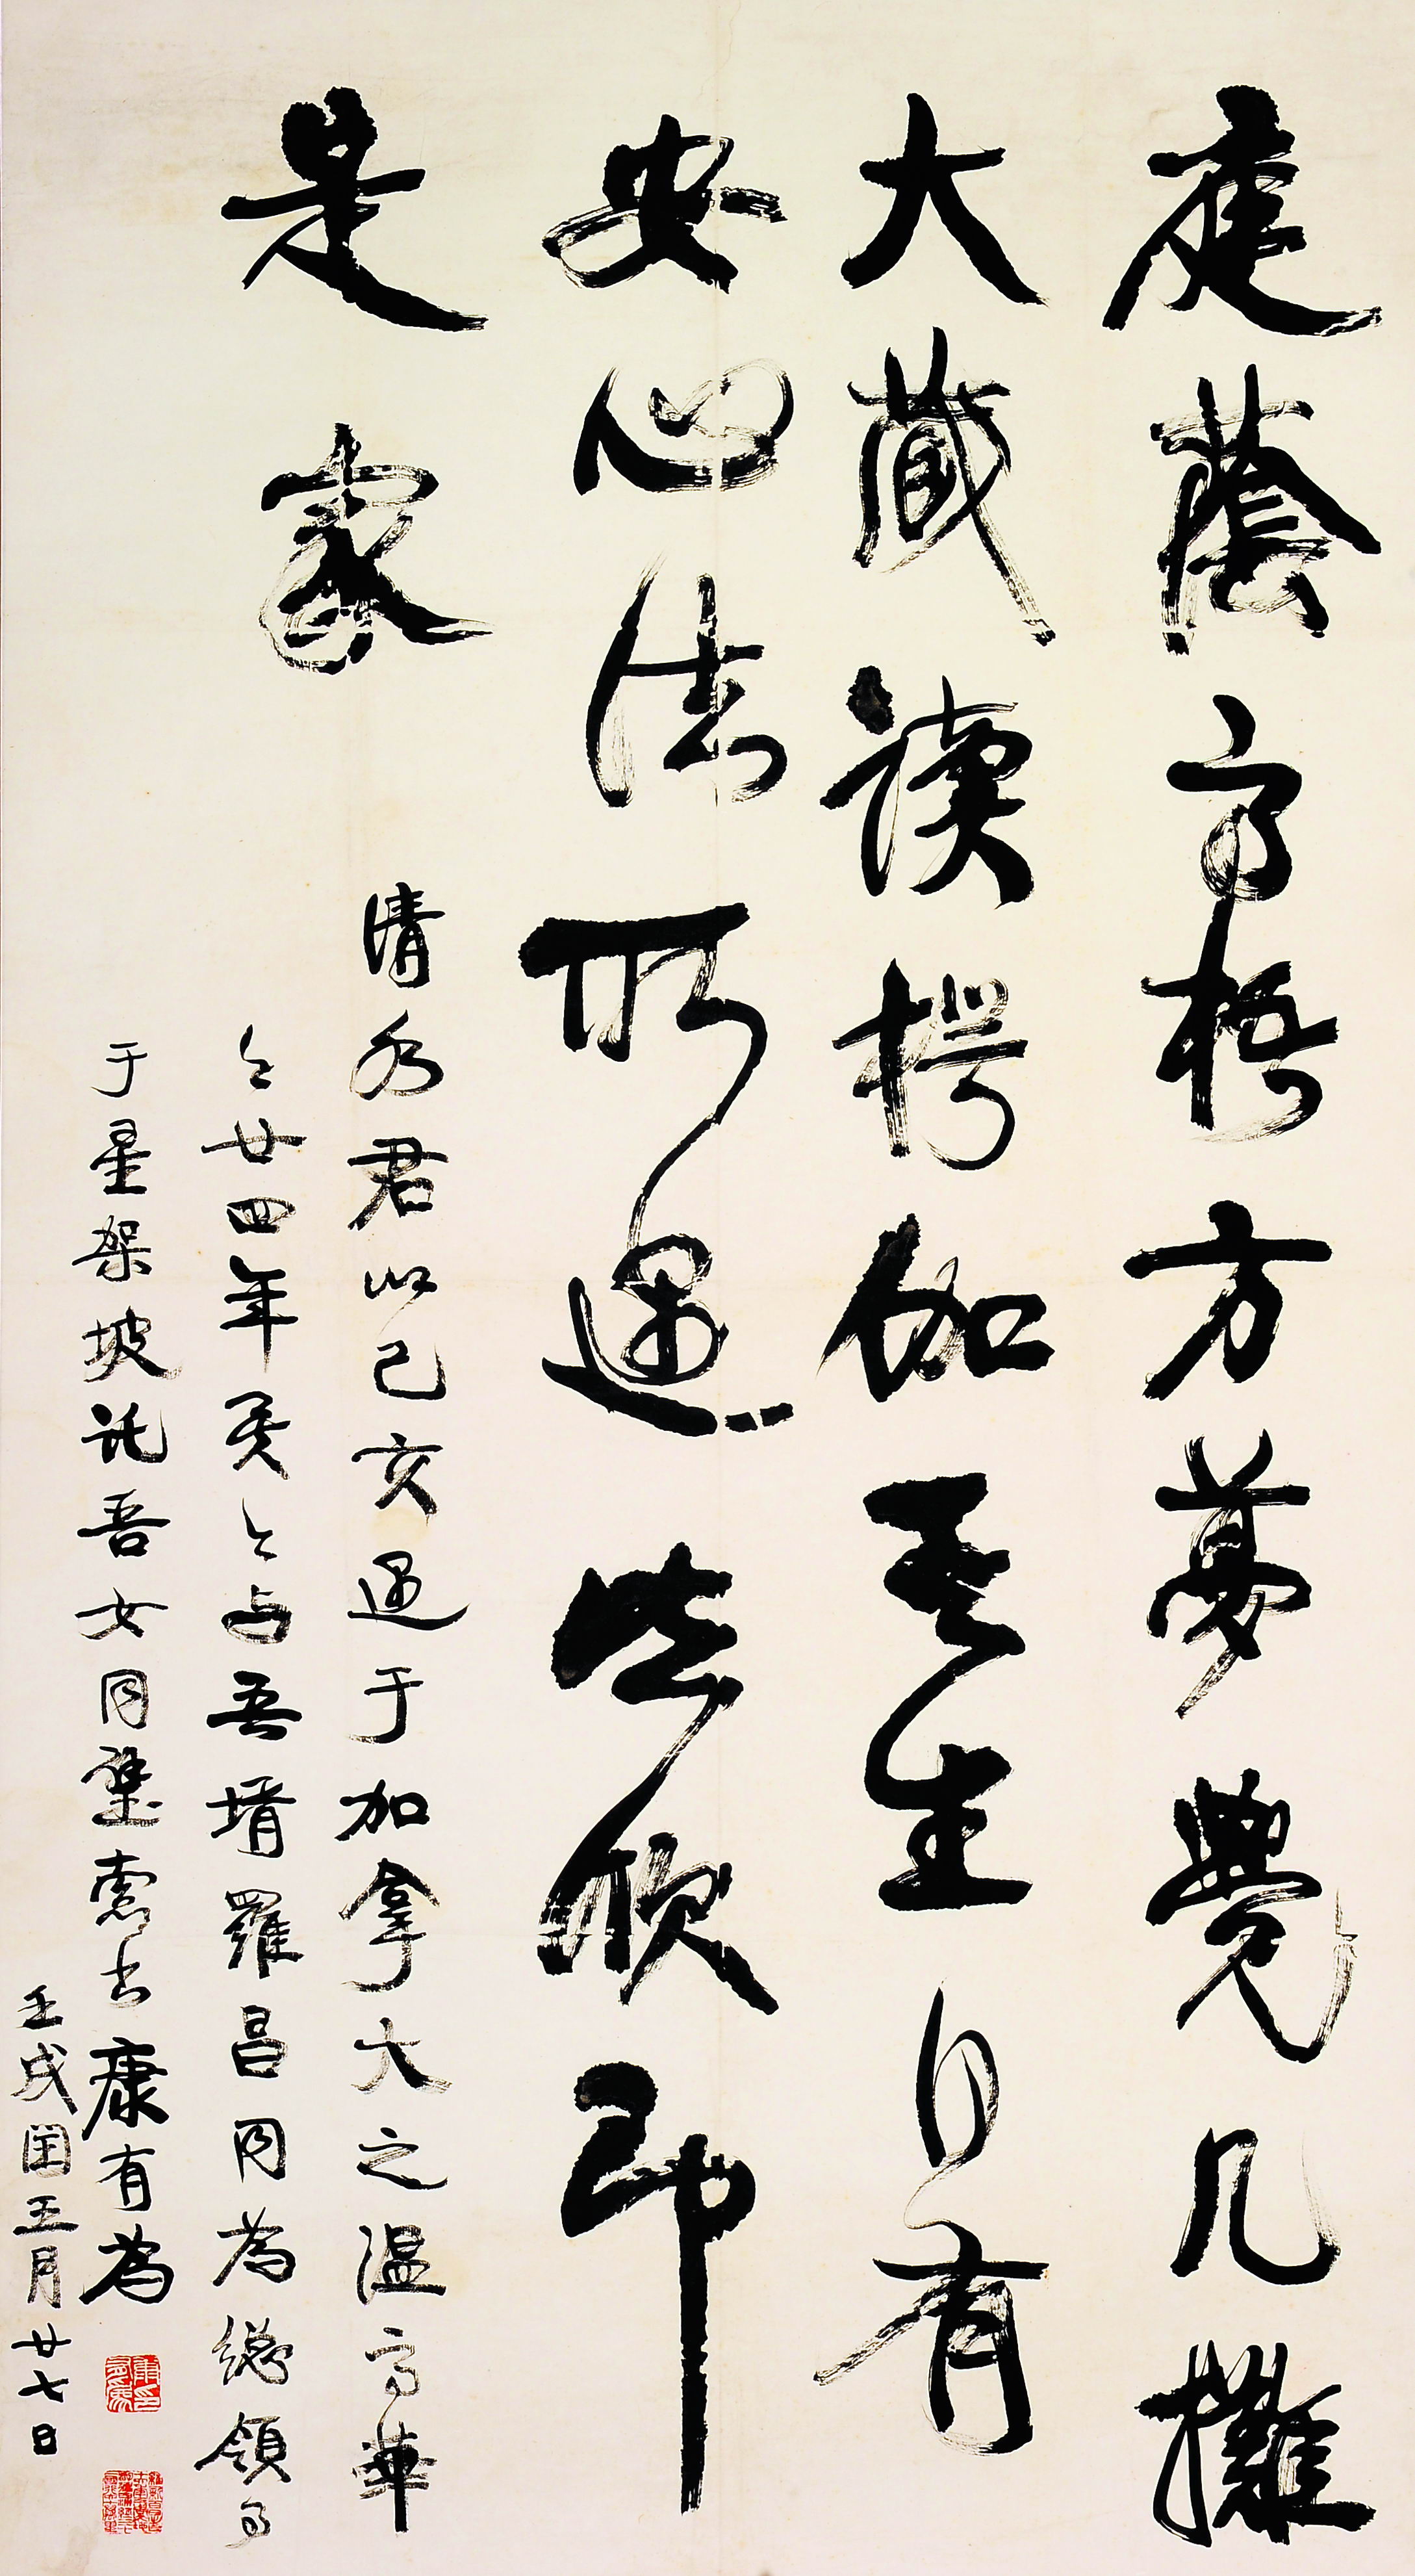 庭蔭高梧方夢覺几攤
大藏讀楞伽無生自有
安心法所遇皆欣即
是家
清水君以己亥遇于加拿大之溫高華
今廿四年矣今與吾壻羅昌同為總領事
于星架坡託吾女同璧索書康有為
壬戌閏五月廿七日